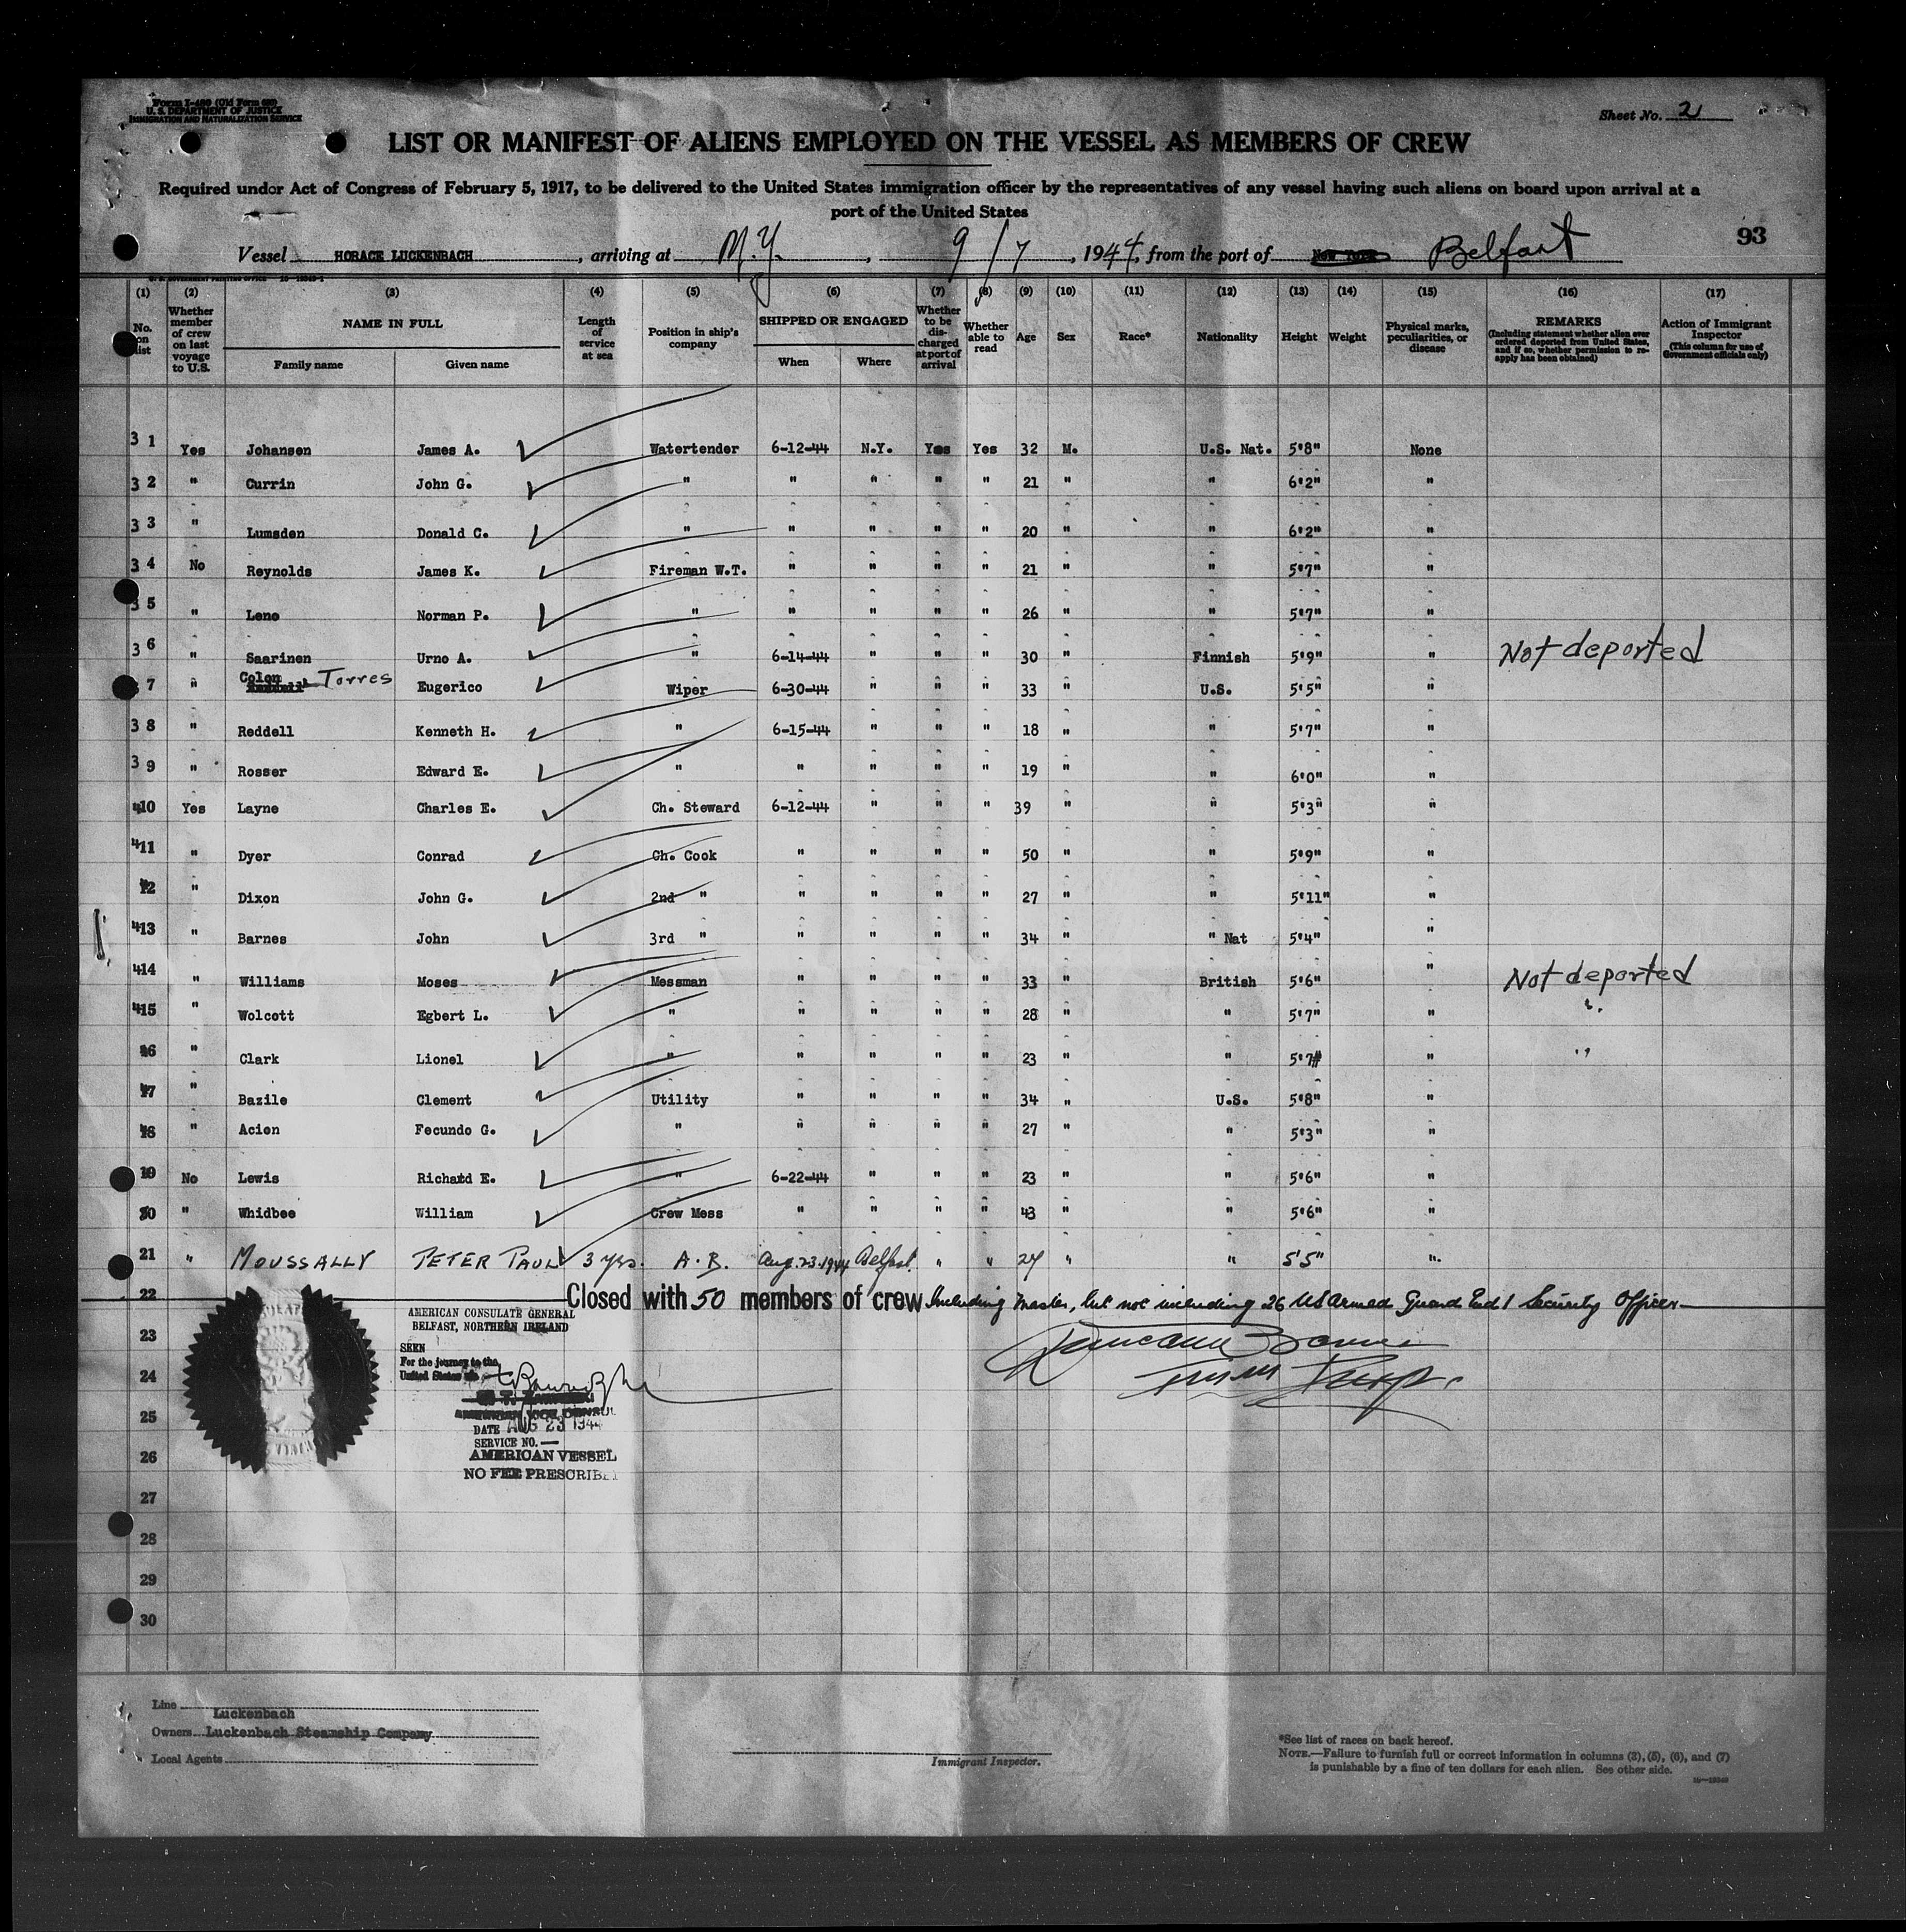 Form I-489 (Old Form 689)
U. S. DEPARTMENT OF JUSTICE
IMMIGRATION AND NATURALIZATION SERVICE
Sheet No. 2
LIST OR MANIFEST OF ALIENS EMPLOYED ON THE VESSEL AS MEMBERS OF CREW
Required under Act of Congress of February 5, 1917, to be delivered to the United States immigration officer by the representatives of any vessel having such aliens on board upon arrival at a
port of the United States
93
Vessel HORACE LUCKENBACH, arriving at N.Y., 9/7, 1944, from the port of New York Belfast
(1) (2) (3) (4) (5) (6) (7) (8) (9) (10) (11) (12) (13) (14) (15) (16) (17)
No. on list
Whether member of crew on last voyage to U.S.
NAME IN FULL
Family name Given name
Length service at sea
Position in ship's company
SHIPPED OR ENGAGED
When Where
Whether to be discharged at port of arrival
Whether able to read
Age Sex Race* Nationality Height Weight
Physical marks, peculiarities, or disease
REMARKS
(Including statement whether alien ever ordered deported from United States, and if so, whether permission to reapply has been obtained)
Action of Immigrant Inspector
(This column for use of Government officials only)
3 1 Yes Johansen James A. Watertender 6-12-44 N.Y. Yes Yes 32 M. U.S. Nat. 5'8" None
3 2 " Currin John G. " " " " " 21 " " 6'2" "
3 3 " Lumsden Donald C. " " " " " 20 " " 6'2" "
3 4 No Reynolds James K. Fireman W.T. " " " " 21 " " 5'7" "
3 5 " Leno Norman P. " " " " " 26 " " 5'7" "
3 6 " Saarinen Urno A. " 6-14-44 " " " 30 " Finnish 5'9" " Not deported
7 " Colon Torres Eugerico Wiper 6-30-44 " " " 33 " U.S. 5'5" "
3 8 " Reddell Kenneth H. " 6-15-44 " " " 18 " " 5'7" "
3 9 " Rosser Edward E. " " " " " 19 " " 6'0" "
410 Yes Layne Charles E. Ch. Steward 6-12-44 " " " 39 " " 5'3" "
411 " Dyer Conrad Ch. Cook " " " " 50 " " 5'9" "
12 " Dixon John G. 2nd " " " " " 27 " " 5'11" "
413 " Barnes John 3rd " " " " " 34 " " Nat 5'4" "
414 " Williams Moses Messman " " " " 33 " British 5'6" " Not deported
415 " Wolcott Egbert L. " " " " " 28 " " 5'7" " "
46 " Clark Lionel " " " " " 23 " " 5'7" " "
47 " Bazile Clement Utility " " " " 34 " U.S. 5'8" "
48 " Acien Fecundo G. " " " " " 27 " " 5'3" "
19 No Lewis Richard E. " 6-22-44 " " " 23 " " 5'6" "
50 " Whidbee William Crew Mess " " " " 43 " " 5'6" "
21 " MOUSSALLY PETER PAUL 3 yrs. A.B. Aug. 23. 1944 Belfast. " " 27 " " 5'5" "
22 Closed with 50 members of crew Including Master, but not including 26 US Armed Guard and 1 Security Officer
AMERICAN CONSULATE GENERAL
BELFAST, NORTHERN IRELAND
23
SEEN
For the journey to the
United States
24
AMERICAN VICE CONSUL
25
DATE AUG 23 1944
SERVICE NO. —
26 AMERICAN VESSEL
NO FEE PRESCRIBED
27
28
29
30
Line Luckenbach
Owners Luckenbach Steamship Company
Local Agents
Immigrant Inspector.
*See list of races on back hereof.
NOTE.—Failure to furnish full or correct information in columns (3), (5), (6), and (7)
is punishable by a fine of ten dollars for each alien. See other side.